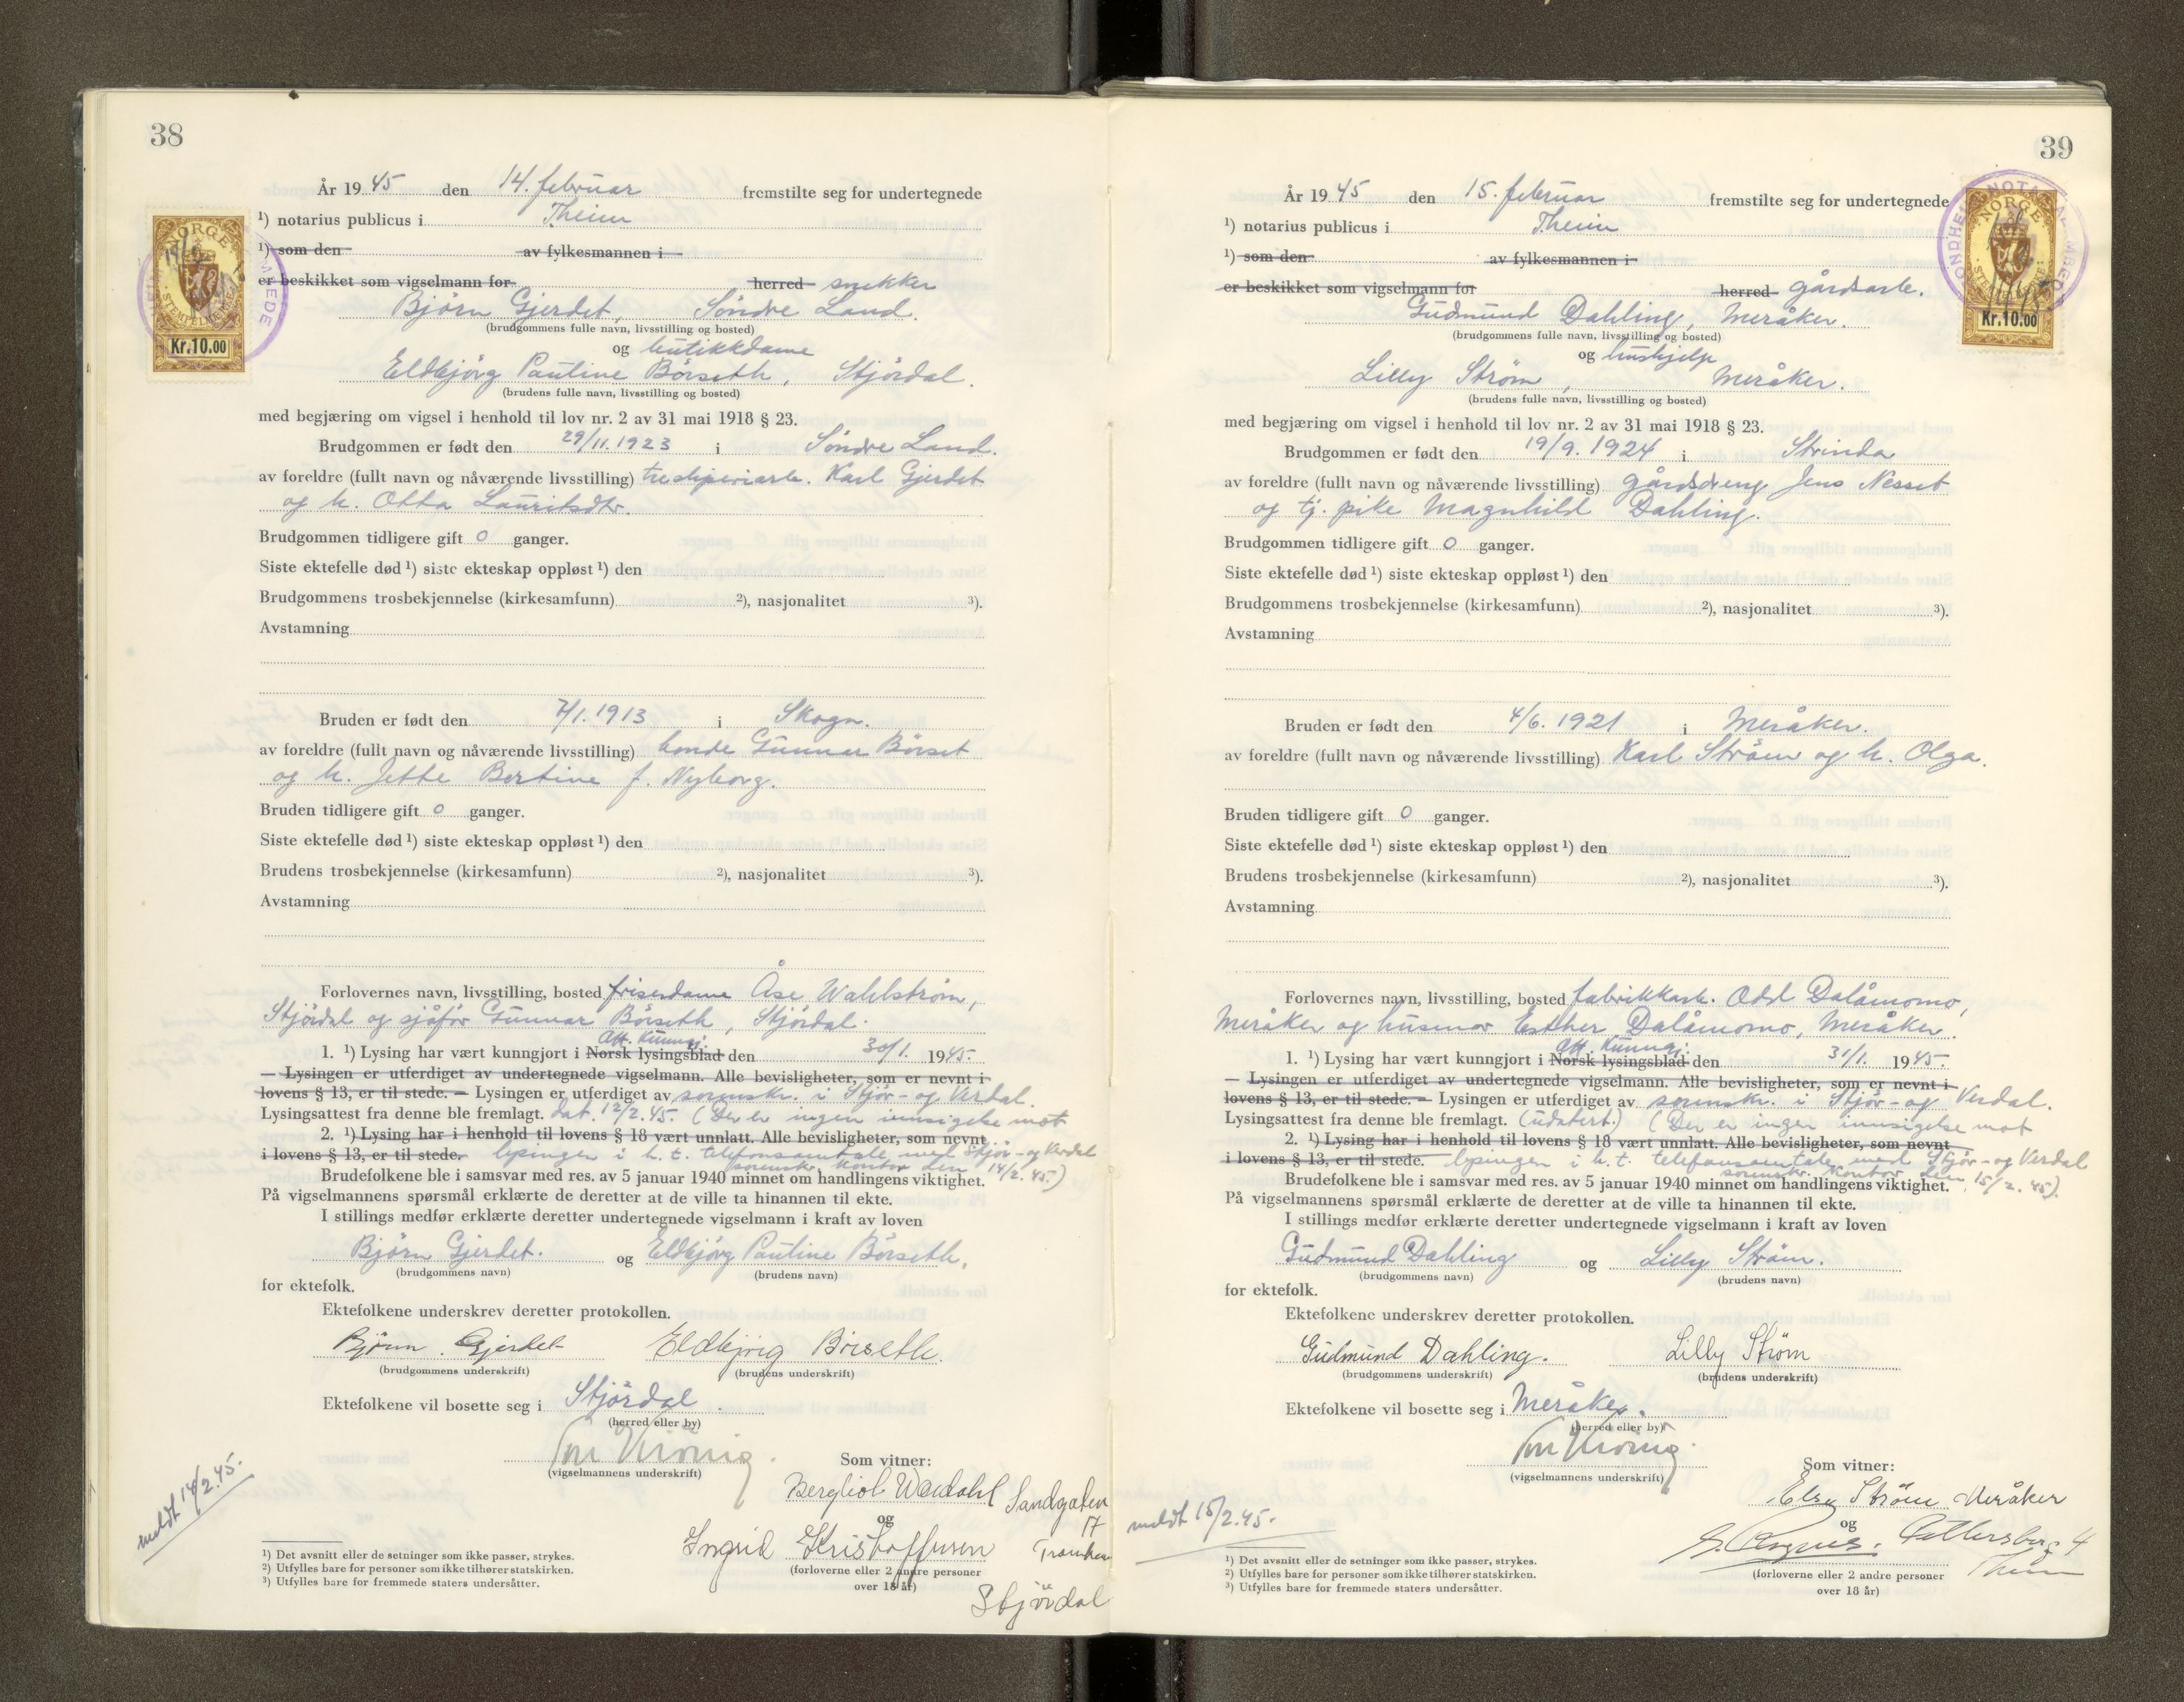 38
År 19 45 den 14. februar fremstilte seg for undertegnede
¹) notarius publicus i Theim
¹) som den av fylkesmannen i
er beskikket som vigselmann for herred snekker
Björn Gjerdet, Söndre Land.
(brudgommens fulle navn, livsstilling og bosted)
og butikkdame
Eldbjörg Pauline Börseth, Stjördal.
(brudens fulle navn, livsstilling og bosted)
med begjæring om vigsel i henhold til lov nr. 2 av 31 mai 1918 § 23.
Brudgommen er født den 29/11.1923 i Söndre Land.
av foreldre (fullt navn og nåværende livsstilling) tresliperiarb. Karl Gjerdet
og h. Otta Lauritsdtr.
Brudgommen tidligere gift 0 ganger.
Siste ektefelle død ¹) siste ekteskap oppløst ¹) den
Brudgommens trosbekjennelse (kirkesamfunn) ²), nasjonalitet ³).
Avstamning
Bruden er født den 7/1.1913 i Skogn.
av foreldre (fullt navn og nåværende livsstilling) bonde Gunnar Börset
og h. Jette Bertine f. Nyborg.
Bruden tidligere gift 0 ganger.
Siste ektefelle død ¹) siste ekteskap oppløst ¹) den
Brudens trosbekjennelse (kirkesamfunn) ²), nasjonalitet ³).
Avstamning
Forlovernes navn, livsstilling, bosted friserdame Åse Wahlström,
Stjördal og sjåför Gunnar Börseth, Stjördal.
Off. Kunngj.
1. ¹) Lysing har vært kunngjort i Norsk lysingsblad den 30/1. 1945.
— Lysingen er utferdiget av undertegnede vigselmann. Alle bevisligheter, som er nevnt i
lovens § 13, er til stede. — Lysingen er utferdiget av sorenskr. i Stjör- og Verdal.
Lysingsattest fra denne ble fremlagt. dat. 12/2.45. (Der er ingen innsigelse mot
2. ¹) Lysing har i henhold til lovens § 18 vært unnlatt. Alle bevisligheter, som nevnt
i lovens § 13, er til stede. lysingen i h. t. telefonsamtale med Stjör- og Verdal
sorenskr. kontor den 14/2.45.)
Brudefolkene ble i samsvar med res. av 5 januar 1940 minnet om handlingens viktighet.
På vigselmannens spørsmål erklærte de deretter at de ville ta hinannen til ekte.
I stillings medfør erklærte deretter undertegnede vigselmann i kraft av loven
Björn Gjerdet. og Eldbjörg Pauline Börseth,
(brudgommens navn) (brudens navn)
for ektefolk.
Ektefolkene underskrev deretter protokollen.
Björn. Gjerdet Eldbjörg Börseth.
(brudgommens underskrift) (brudens underskrift)
Ektefolkene vil bosette seg i Stjördal.
(herred eller by)
(vigselmannens underskrift)
Som vitner:
Bergliot Wardahl Sandgaten
17
og
Ingrid Kristoffersen
(forloverne eller 2 andre personer
over 18 år)
Stjördal
meldt 14/2.45.
¹) Det avsnitt eller de setninger som ikke passer, strykes.
²) Utfylles bare for personer som ikke tilhører statskirken.
³) Utfylles bare for fremmede staters undersåtter.
NORGE
STEMPELMERKE
Kr.10.00
39
År 19 45 den 15. februar fremstilte seg for undertegnede
¹) notarius publicus i Theim
¹) som den av fylkesmannen i
er beskikket som vigselmann for herred gårdsarb.
Gudmund Dahling, Meråker.
(brudgommens fulle navn, livsstilling og bosted)
og hushjelp
Lilly Ström, Meråker.
(brudens fulle navn, livsstilling og bosted)
med begjæring om vigsel i henhold til lov nr. 2 av 31 mai 1918 § 23.
Brudgommen er født den 19/9.1924 i Strinda
av foreldre (fullt navn og nåværende livsstilling) gårdsdreng Jens Nesset
og tj. pike Magnhild Dahling.
Brudgommen tidligere gift 0 ganger.
Siste ektefelle død ¹) siste ekteskap oppløst ¹) den
Brudgommens trosbekjennelse (kirkesamfunn) ²), nasjonalitet ³).
Avstamning
Bruden er født den 4/6.1921 i Meråker.
av foreldre (fullt navn og nåværende livsstilling) Karl Ström og h. Olga.
Bruden tidligere gift 0 ganger.
Siste ektefelle død ¹) siste ekteskap oppløst ¹) den
Brudens trosbekjennelse (kirkesamfunn) ²), nasjonalitet ³).
Avstamning
Forlovernes navn, livsstilling, bosted fabrikkarb. Odd Dalåmomo,
Meråker og husmor Esther Dalåmomo, Meråker.
Off. Kunngj.
1. ¹) Lysing har vært kunngjort i Norsk lysingsblad den 31/1. 1945.
— Lysingen er utferdiget av undertegnede vigselmann. Alle bevisligheter, som er nevnt i
lovens § 13, er til stede. — Lysingen er utferdiget av sorenskr. i Stjör- og Verdal.
Lysingsattest fra denne ble fremlagt. (udatert.) (Der er ingen innsigelse mot
2. ¹) Lysing har i henhold til lovens § 18 vært unnlatt. Alle bevisligheter, som nevnt
i lovens § 13, er til stede. lysingen i h. t. telefonsamtale med Stjör- og Verdal
sorenskr. kontor den 15/2.45).
Brudefolkene ble i samsvar med res. av 5 januar 1940 minnet om handlingens viktighet.
På vigselmannens spørsmål erklærte de deretter at de ville ta hinannen til ekte.
I stillings medfør erklærte deretter undertegnede vigselmann i kraft av loven
Gudmund Dahling og Lilly Ström.
(brudgommens navn) (brudens navn)
for ektefolk.
Ektefolkene underskrev deretter protokollen.
Gudmund Dahling. Lilly Strøm
(brudgommens underskrift) (brudens underskrift)
Ektefolkene vil bosette seg i Meråker.
(herred eller by)
(vigselmannens underskrift)
Som vitner:
Elsy Strøm Meråker
og
(forloverne eller 2 andre personer
over 18 år)
meldt 15/2.45.
¹) Det avsnitt eller de setninger som ikke passer, strykes.
²) Utfylles bare for personer som ikke tilhører statskirken.
³) Utfylles bare for fremmede staters undersåtter.
NORGE
Kr.10.00